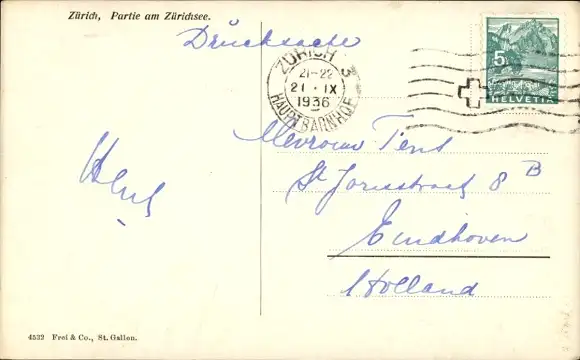 Zürich, Partie am Zürichsee.
Drucksache
ZÜRICH 3
21-22
21·IX
1936
HAUPTBAHNHOF
5
HELVETIA
Mevrouw Tent
St Jorisstraat 8 B
Eindhoven
Holland
4532 Frei & Co., St. Gallen.